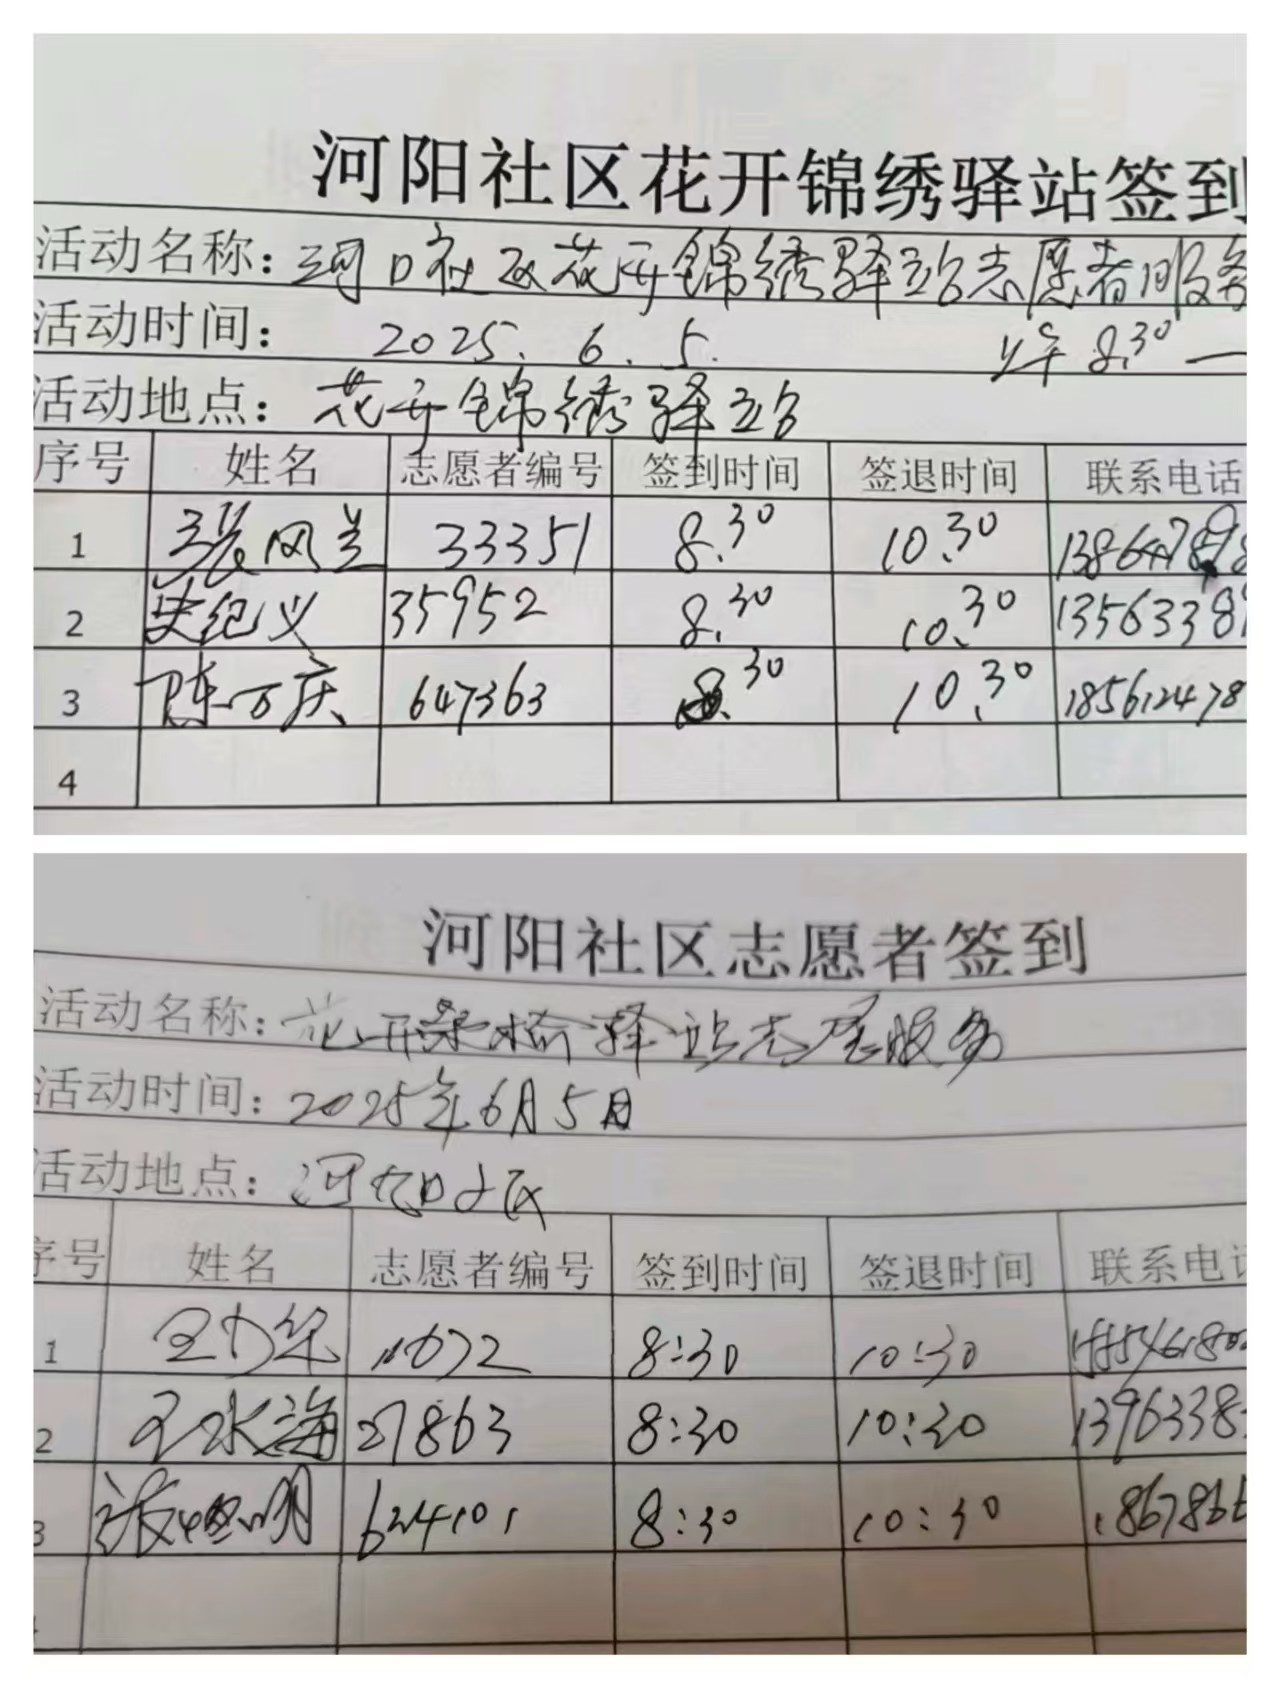 河阳社区花开锦绣驿站签到
活动名称：河口社区花开锦绣驿站志愿者服务
活动时间： 2025. 6. 5. 上午 8.30 —
活动地点：花开锦绣驿站
序号 姓名 志愿者编号 签到时间 签退时间 联系电话
1 张凤兰 33351 8.30 10.30
2 史纪义 35952 8.30 10.30 13563389
3 陈万庆 647363 8.30 10.30 185612478
4
河阳社区志愿者签到
活动名称：花开 驿站志愿服务
活动时间：2025年6月5日
活动地点：河阳社区
序号 姓名 志愿者编号 签到时间 签退时间 联系电话
1 8:30 10:30
2 王水海 27863 8:30 10:30 1396338
3 624101 8:30 10:30 1867866